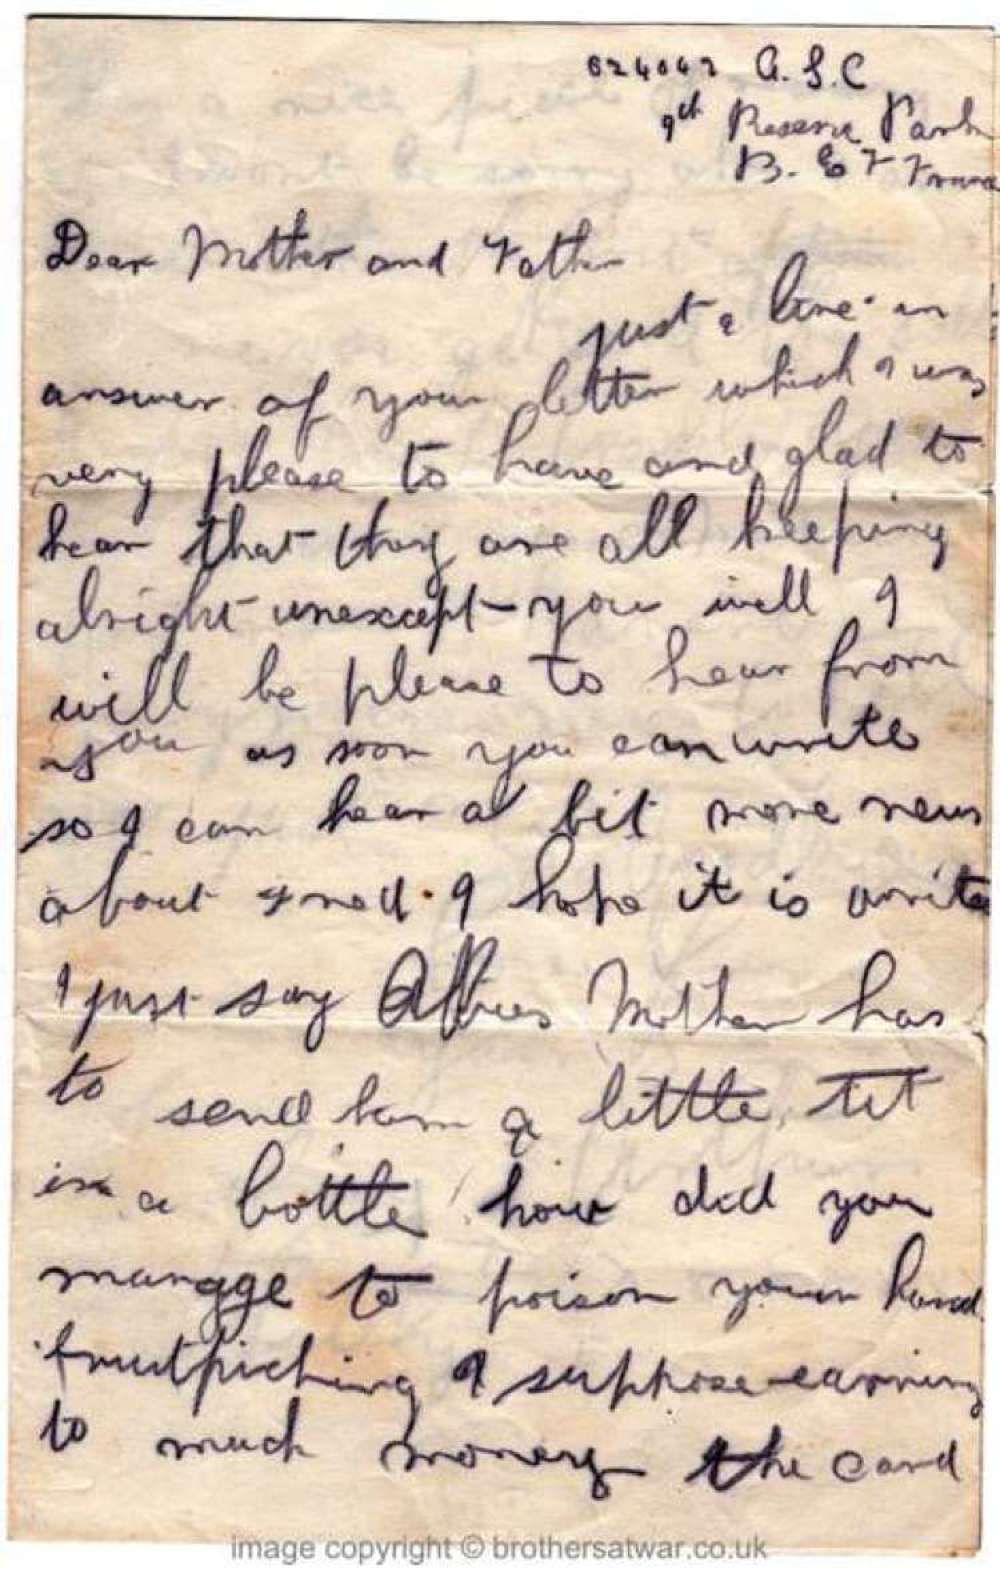 024042 A.S.C
9th Reserve Park
B.E.F France
Dear Mother and Father
just a line in
answer of your letter which I was
very please to have and glad to
hear that thay are all keeping
alright unexcept you will I
will be please to hear from
you as soon you can write
so I can hear a bit more news
about Fred. I hope it is
I just say Mother has
to send him a little tit
in a bottle how did you
manage to poison your hand
fruitpicking I suppose earning
to much money the card
image copyright © brothersatwar.co.uk